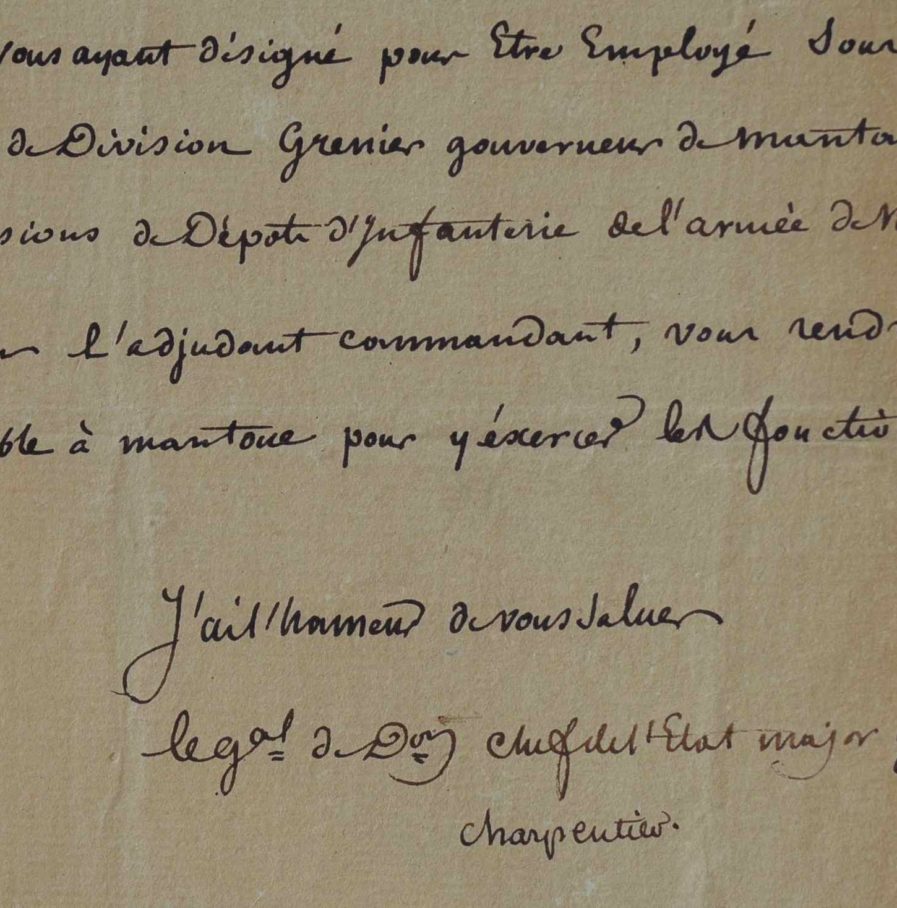 vous ayant désigné pour Etre Employé Sous
de Division Grenier gouverneur de manto
sions de Dépots d'Infanterie de l'armée de N
l'adjudant commandant, vous rendr
ble à mantoue pour y éxercer les fonctio
J'ai l'honneur de vous Saluer
le gal de Don chef de l'Etat major g
charpentier.